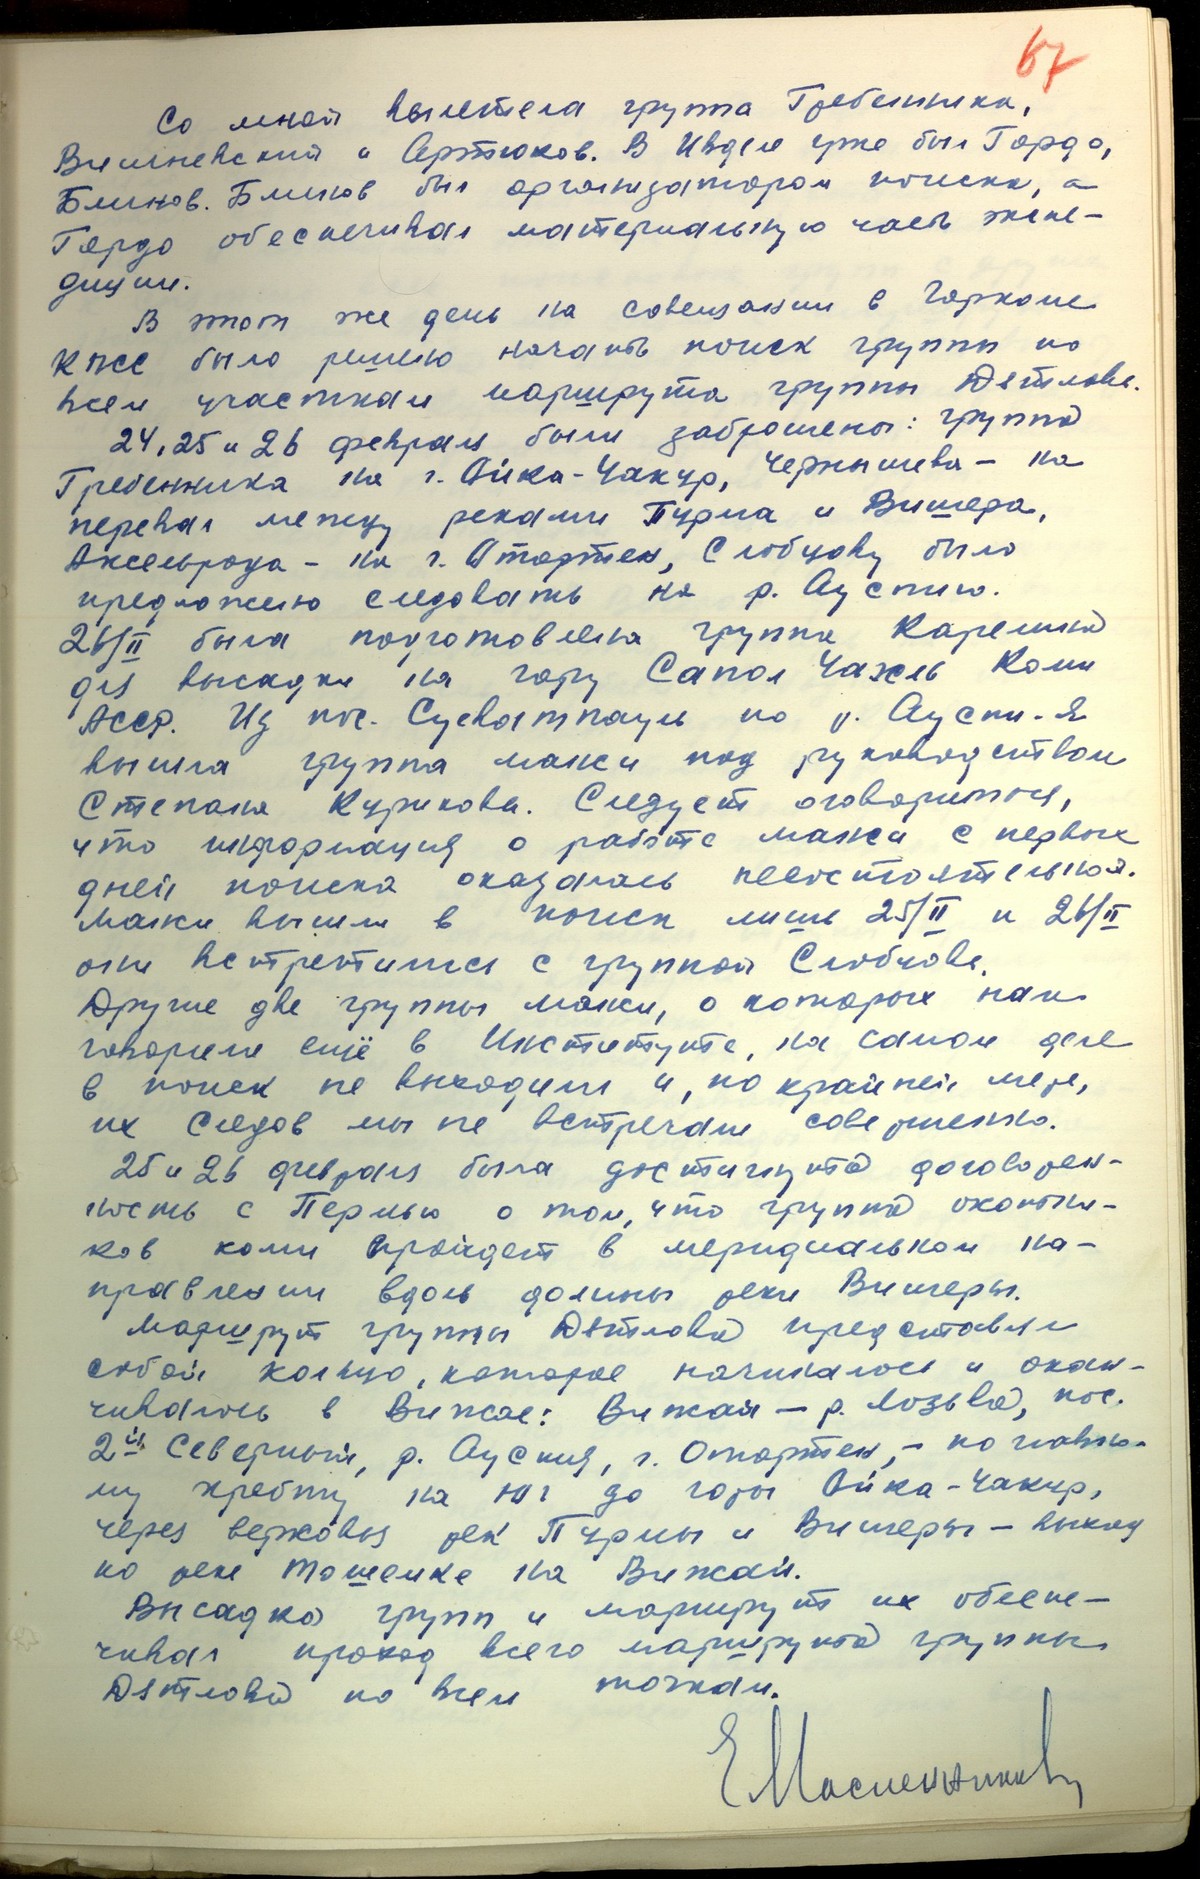 67
Со мной вылетела группа Гребенника,
Вишневский и Артюков. В Ивделе уже был Гордо,
Блинов. Блинов был организатором поиска, а
Гордо обеспечивал материальную часть экспе-
диции.
В этот же день на совещании в Горкоме
КПСС было решено начать поиск группы по
всем участкам маршрута группы Дятлова.
24, 25 и 26 февраля были заброшены: группа
Гребенника на г. Ойка-Чакур, Чернышева - на
перевал между реками Пурма и Вишера,
Аксельрода - на г. Отортен, Слобцову было
предложено следовать на р. Ауспию.
26/II была подготовлена группа Карелина
для высадки на гору Сапол Чахль Коми
АССР. Из пос. Суеватпауль по р. Ауспи-я
вышла группа манси под руководством
Степана Курикова. Следует оговориться,
что информация о работе манси с первых
дней поиска оказалась несостоятельной.
Манси вышли в поиск лишь 25/II и 26/II
они встретились с группой Слобцова.
Другие две группы манси, о которых нам
говорили ещё в Институте, на самом деле
в поиск не выходили и, по крайней мере,
их следов мы не встречали совершенно.
25 и 26 февраля была достигнута договорен-
ность с Пермью о том, что группа охотни-
ков коми пройдет в меридиальном на-
правлении вдоль долины реки Вишеры.
Маршрут группы Дятлова представлял
собой кольцо, которое начиналось и окан-
чивалось в Вижае: Вижай - р. Лозьва, пос.
2й Северный, р. Ауспия, г. Отортен, - по главно-
му хребту на юг до горы Ойка-Чакур,
через верховья рек Пурмы и Вишеры - выход
по реке Тошемке на Вижай.
Высадка групп и маршрут их обеспе-
чивал проход всего маршрута группы
Дятлова по всем точкам.
Е Масленников